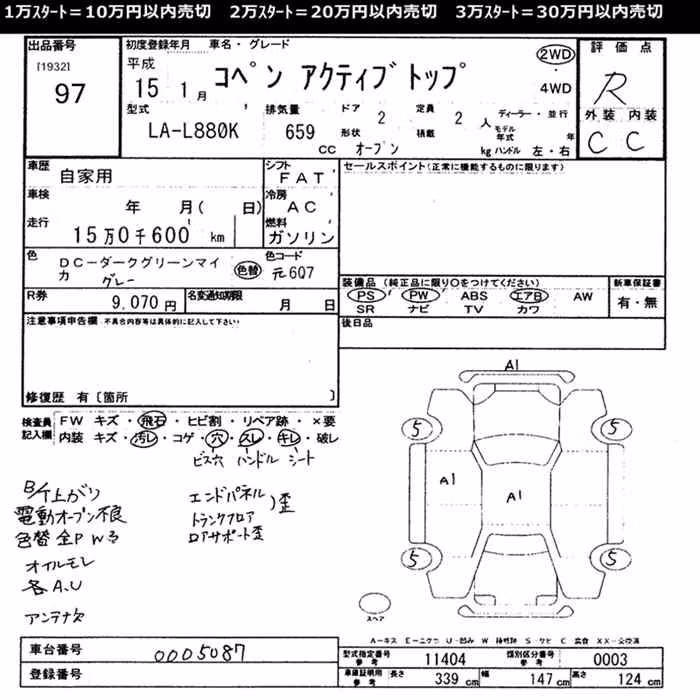 1万ｽﾀｰﾄ＝10万円以内売切　2万ｽﾀｰﾄ＝20万円以内売切　3万ｽﾀｰﾄ＝30万円以内売切
出品番号 初度登録年月 車名・グレード 評価点
[1932] 平成 2WD
97 15 1月 コペン アクティブトップ 4WD R
型式 排気量 ドア 定員 ディーラー・並行 外装 内装
LA-L880K 659 cc 2 2 人 モデル年式 年 C C
形状 オープン 積載 kg ハンドル 左・右
車歴 自家用 シフト FAT セールスポイント(正常に機能するものに限ります)
車検 年 月( 日) 冷房 AC
走行 15万0千600 km 燃料 ガソリン
色 DC-ダークグリーンマイカ グレー 色替 色コード 元607
装備品 (純正品に限り○をつけてください) 新車保証書
PS PW ABS エアB AW 有・無
SR ナビ TV カワ
R券 9,070円 名変通知期限 月 日
後日品
注意事項申告欄 不具合内容等は具体的に記入して下さい)
修復歴 有〔箇所 〕
検査員記入欄 FW キズ・飛石・ヒビ割・リペア跡・×要
内装 キズ・汚レ・コゲ・穴・スレ・キレ・破レ
ビス穴 ハンドル シート
下上がり エンドパネル
電動オープン不良 トランクフロア 歪
色替 全PWる ロアサポート歪
オイルモレ
各A.U
アンテナ欠
A1
5 5
A1 A1
5 5
スペア
A-キス E-エクボ U-凹み W S-サビ C XX-交換済
車台番号 0005087
登録番号
型式指定番号 参考 11404 類別区分番号 参考 0003
車庫証明用 参考 長さ 339 cm 幅 147 cm 高さ 124 cm